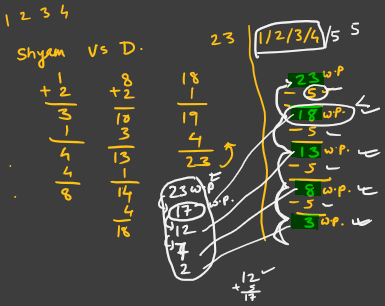 1 2 3 4
Shyam Vs D.
1
+2
3
1
4
4
8
8
+2
10
3
13
1
14
4
18
18
1
19
4
23
23
1/2/3/4/5 5
23 w.p
- 5
18 w.p.
- 5
13 w.p.
- 5
8 w.p.
- 5
3 w.p.
23 w.p
17 w.p.
12
7
2
12
+5
17